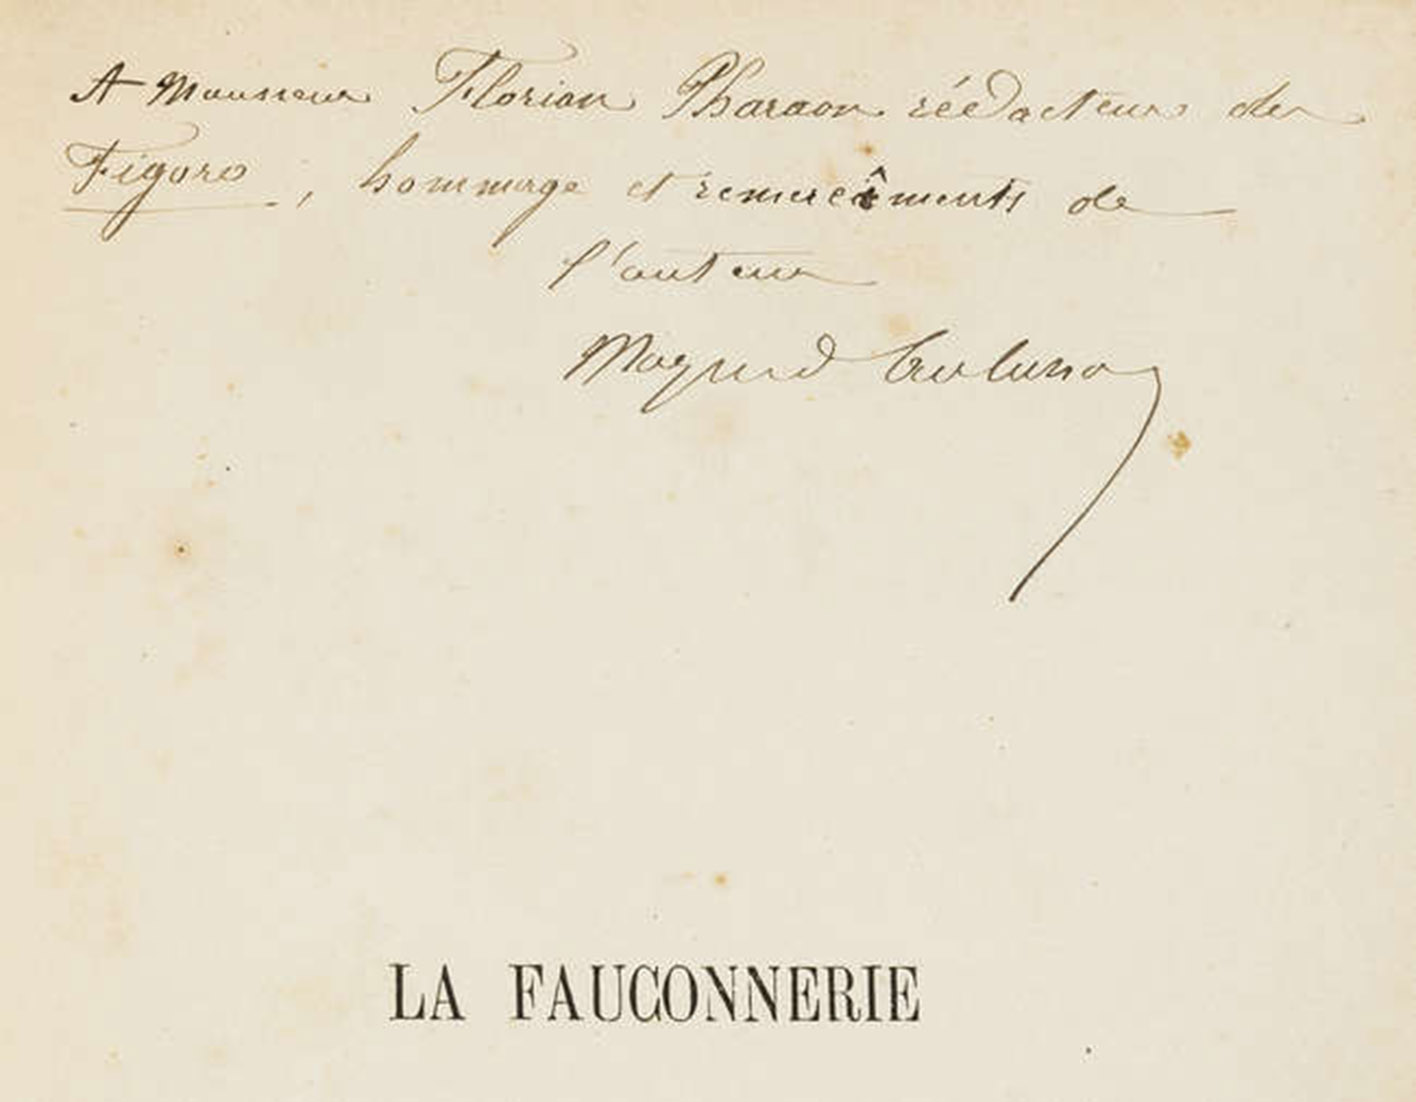 A Monsieur Florian Pharaon réédacteur de
Figaro, hommage et remercîments de
l'auteur
Magaud d'Aubusson
LA FAUCONNERIE